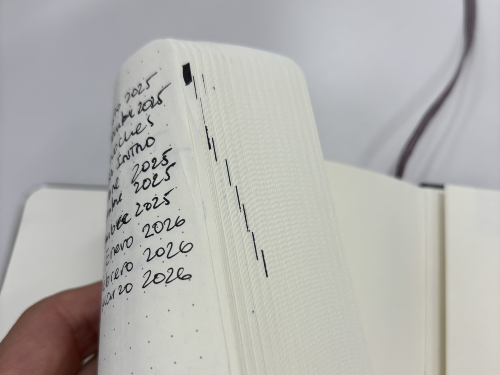 2025
mbre 2025
INTRO
re 2025
mbre 2025
embre 2025
Enero 2026
brero 2026
arzo 2026